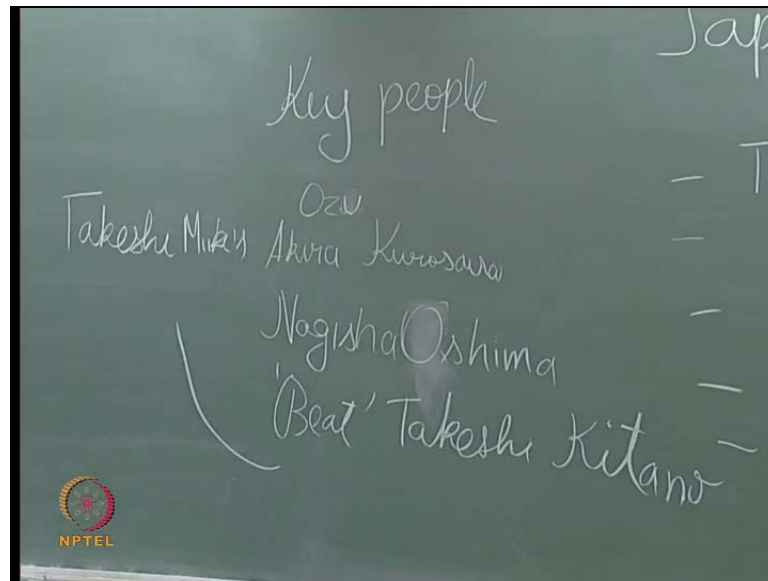 Jap
Key people
T
Ozu
Takeshi Miike's Akira Kurosawa
Nagisha Oshima
'Beat' Takeshi Kitano
NPTEL